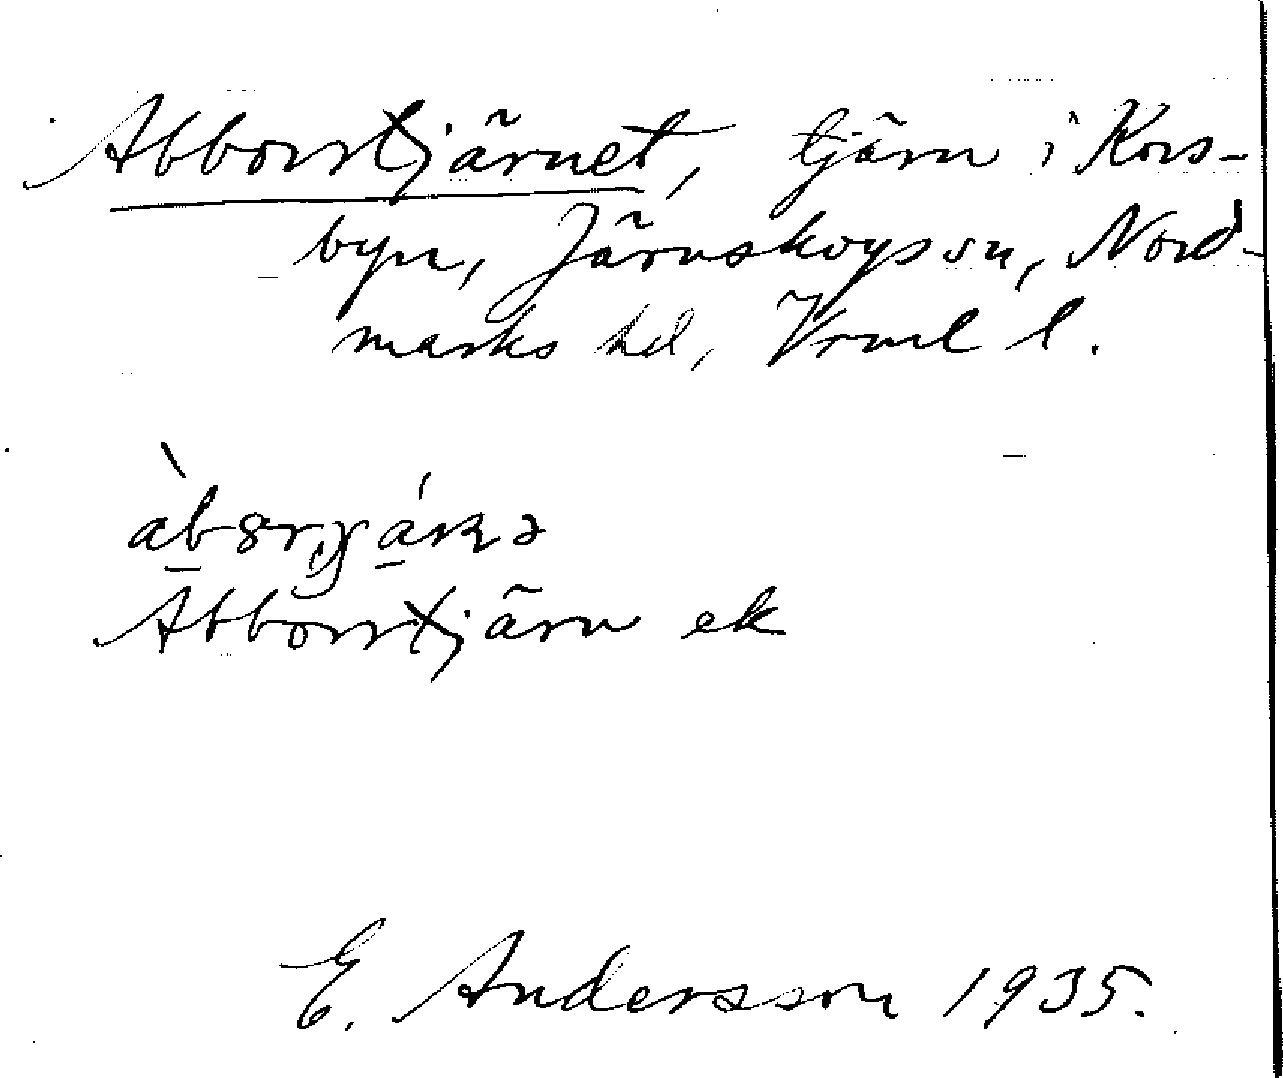 Abborrtjärnet, tjärn i Kors-
byn, Järnskogs sn, Nord-
marks hd, Vrml l.
Abborrtjärn ek
E. Andersson 1935.